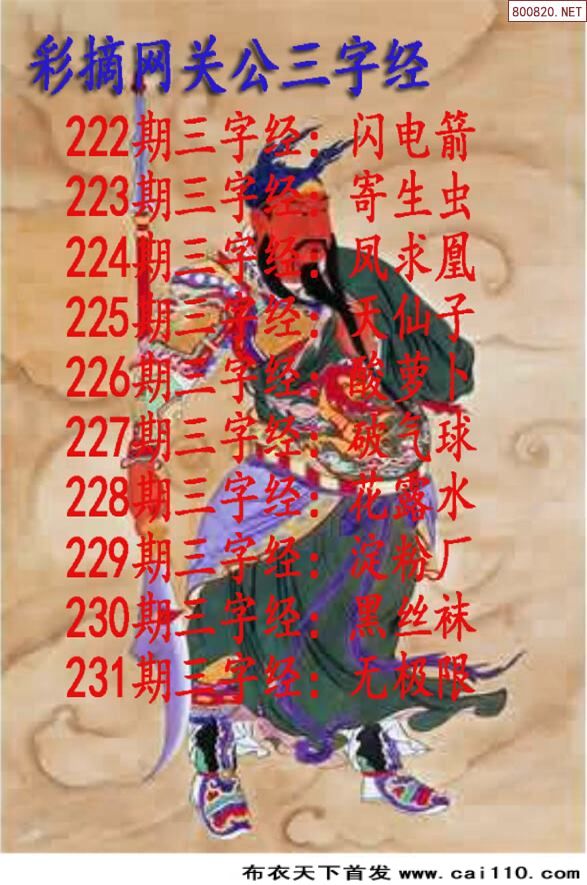 800820.NET
彩摘网关公三字经
222期三字经：闪电箭
223期三字经：寄生虫
224期三字经：凤求凰
225期三字经：天仙子
226期三字经：酸萝卜
227期三字经：破气球
228期三字经：花露水
229期三字经：淀粉厂
230期三字经：黑丝袜
231期三字经：无极限
布衣天下首发 www.cai110.com